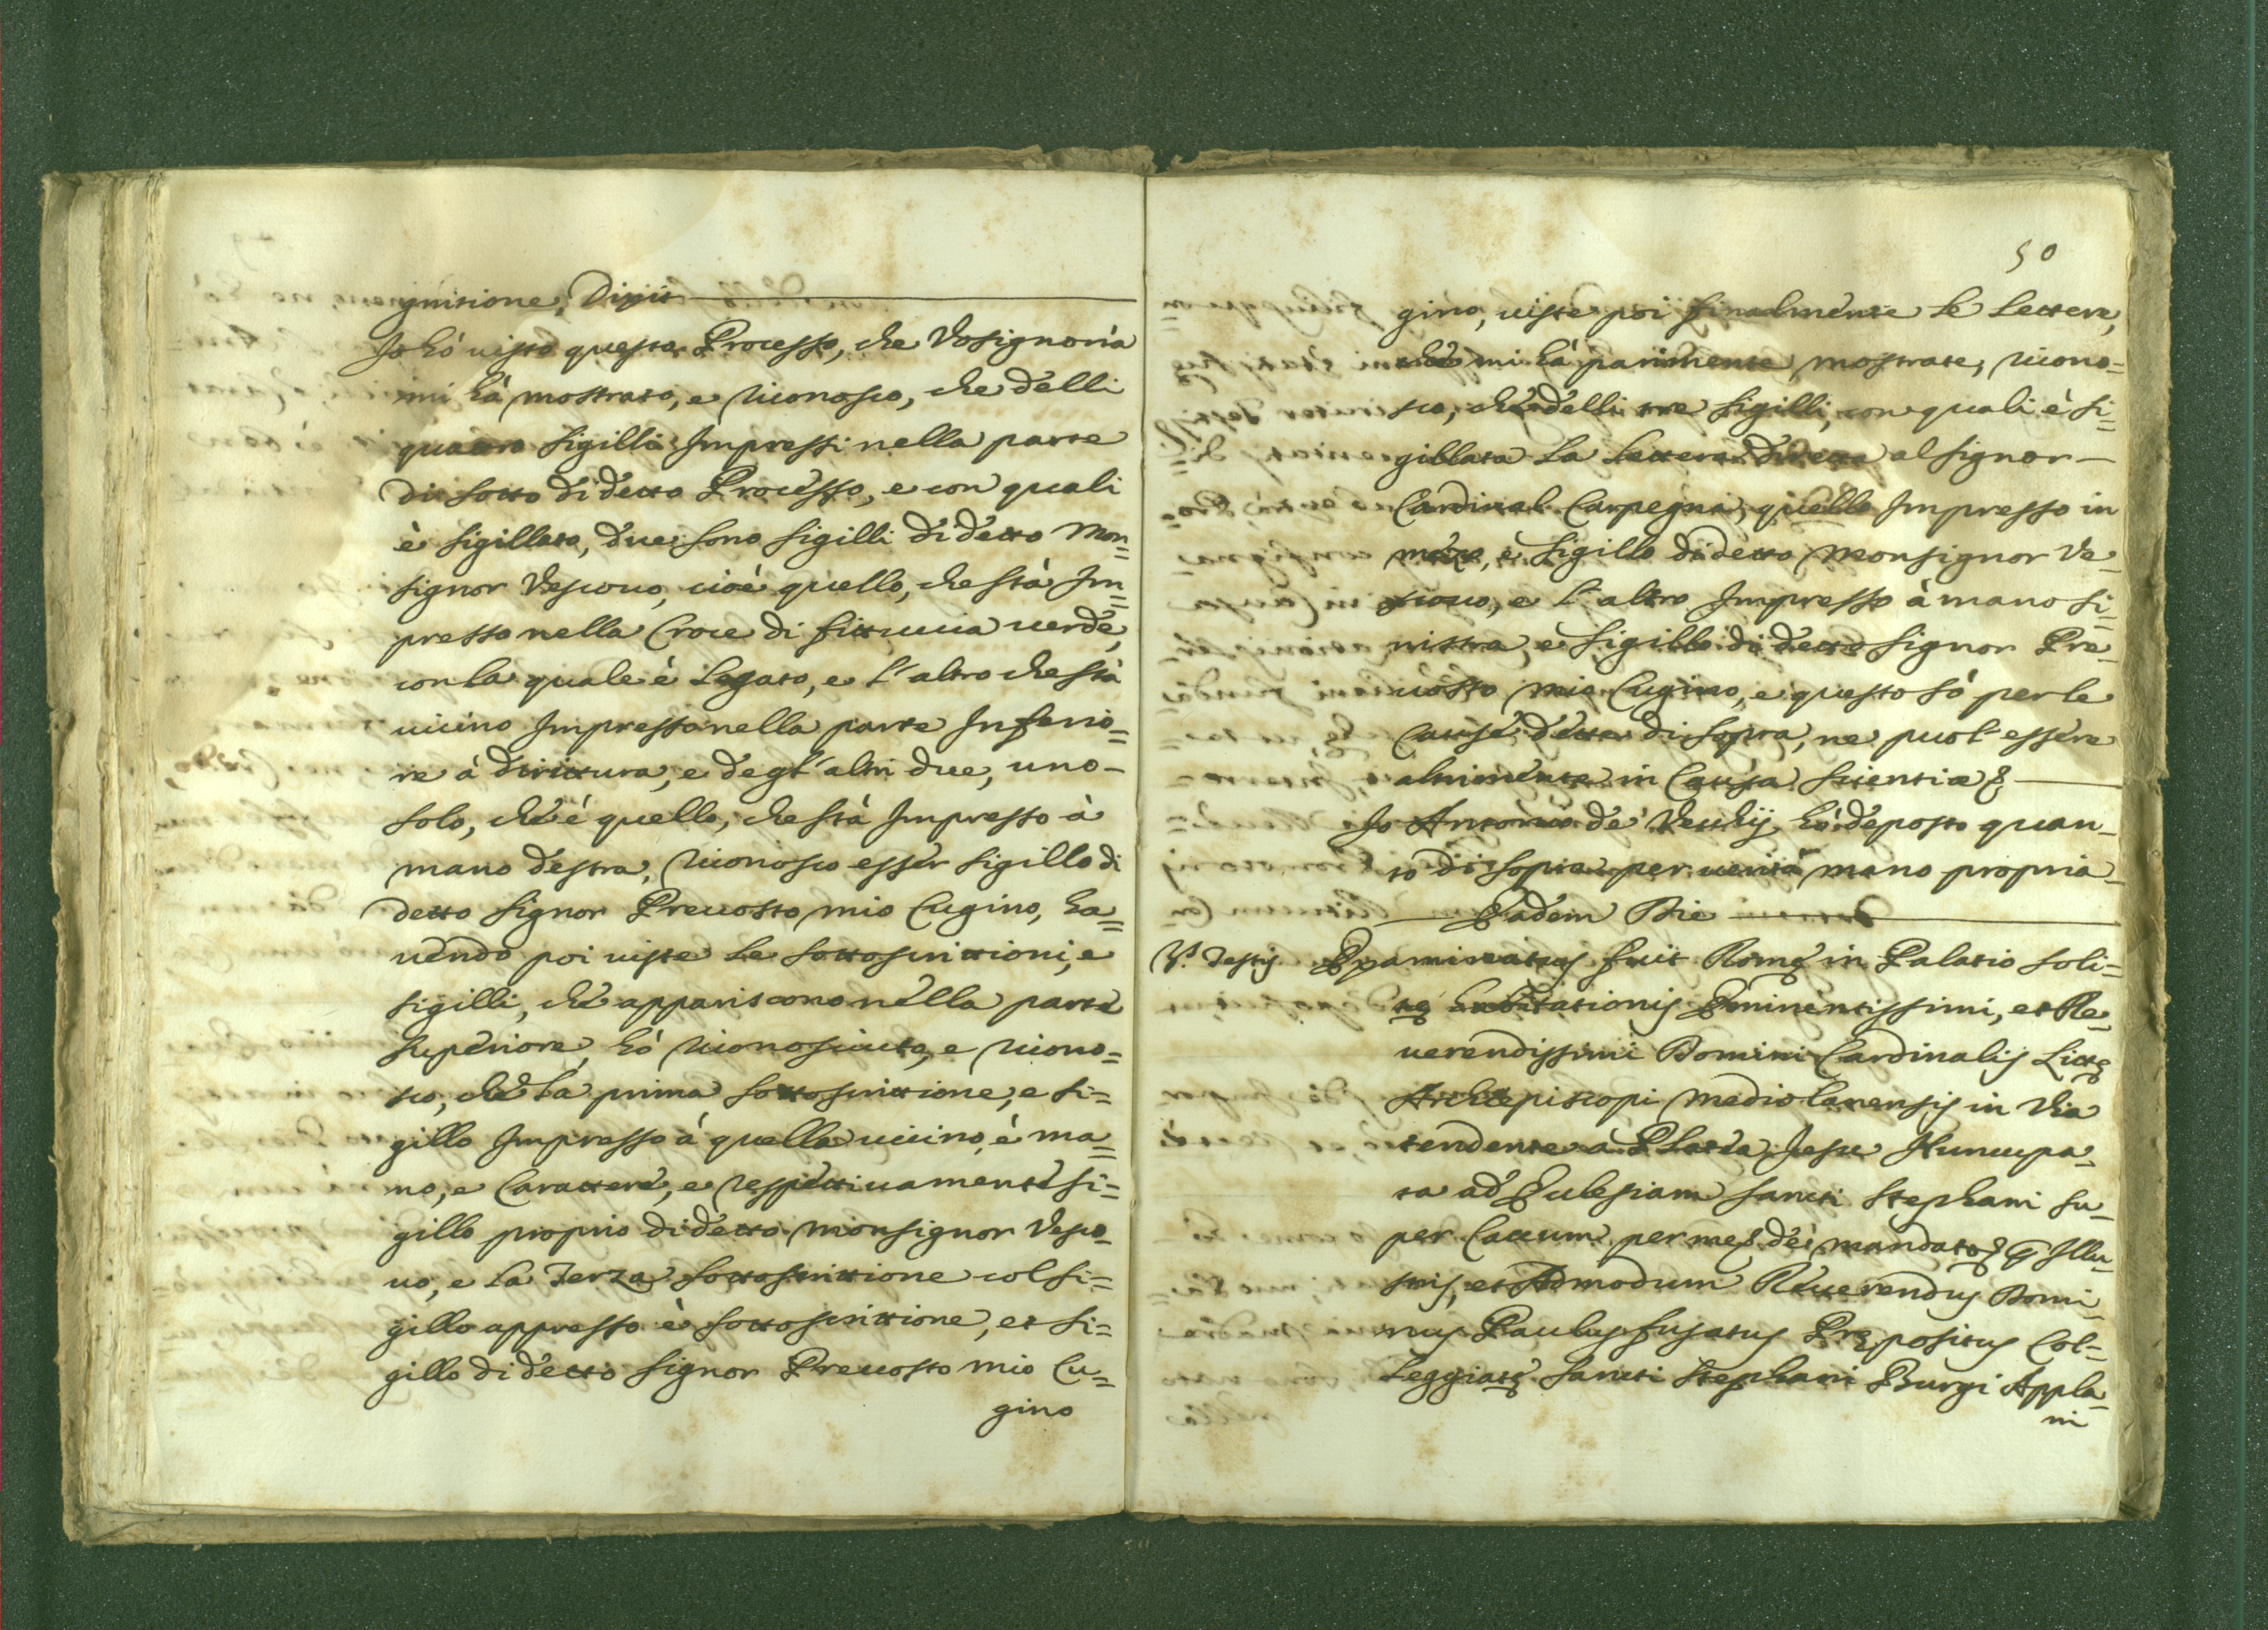 gnitione, Dixit
Io hò uisto questo Processo, che Vosignoria
mi hà mostrato, e riconosco, che delli
quattro sigilli Impressi nella parte
di sotto di detto Processo, e con quali
è sigillato, due sono sigilli di detto Mon=
signor Vescouo, cioè quello, che stà Im=
presso nella Croce di fittuccia uerde,
con la quale è legato, e l'altro che stà
uicino Impresso nella parte Inferio=
re à dirittura, e degl'altri due, uno-
solo, che è quello, che stà Impresso à
mano destra, riconosco esser sigillo di
detto Signor Preuosto mio Cugino, ha=
uendo poi uiste le sottoscrittioni, e
sigilli, che appariscono nella parte
superiore, hò riconosciuto, e ricono=
sco, che la prima sottoscrittione, e si=
gillo Impresso à quella uicino, è ma=
no, e Carattere, e respettiuamente si=
gillo proprio di detto Monsignor Vesco=
uo, e la Terza sottoscrittione col si=
gillo appresso è sottoscrittione, et si=
gillo di detto Signor Preuosto mio Cu=
gino
50
gino, uiste poi finalmente le lettere,
che mi hà parimente mostrate, ricono=
sco, che delli tre sigilli, con quali è si=
gillata la lettera diretta al Signor-
Cardinal Carpegna, quello Impresso in
mezo, è sigillo di detto Monsignor Ve=
scouo, e l'altro Impresso à mano si=
nistra, è sigillo di detto Signor Pre=
uosto mio Cugino, e questo sò per le
cause dette di sopra, ne puol'essere
altrimente in Causa scientiæ &
Io Antonio de' Vecchij hò deposto quan=
to di sopra per uerità mano propria-
Eadem Die
V.s Testis Examinatus fuit Romę in Palatio soli=
tę habitationis Eminentissimi, et Re=
uerendissimi Domini Cardinalis Littę
Archiepiscopi Mediolanensis in Via
tendente à Platea Jesu Nuncupa=
ta ad Ecclesiam Sancti Stephani su=
per Caccum per me & de mandato & Illu=
stris, et Admodum Reuerendus Domi=
nus Paulus fusatus Prępositus Col=
leggiatę Sancti Stephani Burgi Appla=
ni